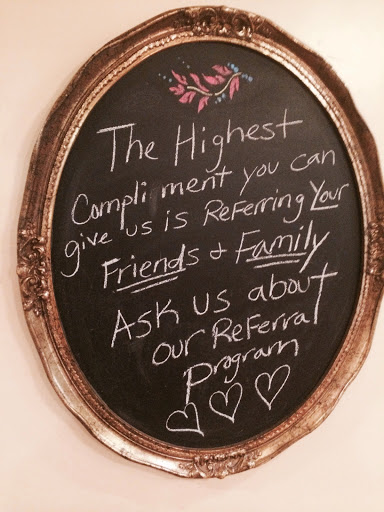 The Highest
Compliment you can
give us is Referring Your
Friends & Family
Ask us about
our Referral
program